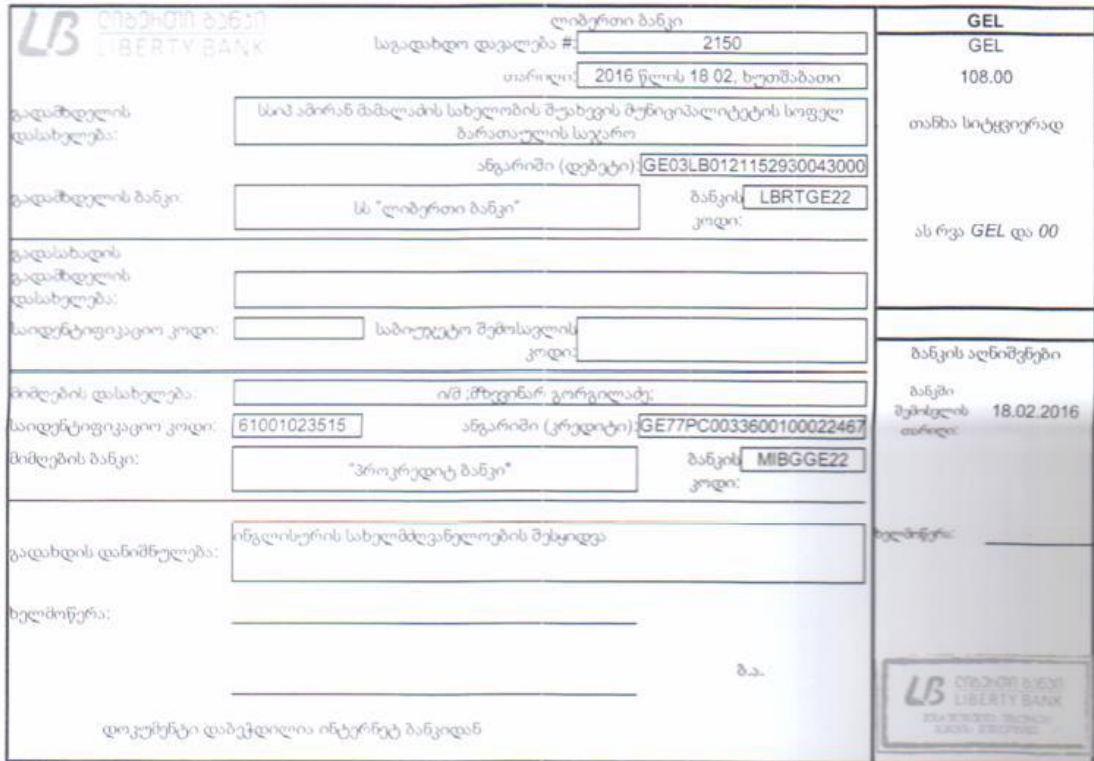 ლიბერთი ბანკი
LIBERTY BANK
ლიბერთი ბანკი
საგადახდო დავალება #: 2150
თარიღი: 2016 წლის 18 02, ხუთშაბათი
გადამხდელის დასახელება:
სსიპ ამირან მამალაძის სახელობის შუახევის მუნიციპალიტეტის სოფელ
ბარათაულის საჯარო
ანგარიში (დებეტი): GE03LB0121152930043000
გადამხდელის ბანკი: სს "ლიბერთი ბანკი" ბანკის კოდი: LBRTGE22
გადასახადის
გადამხდელის
დასახელება:
საიდენტიფიკაციო კოდი: საბიუჯეტო შემოსავლის
კოდი:
მიმღების დასახელება: ი/მ ;მზევინარ გორგილაძე;
საიდენტიფიკაციო კოდი: 61001023515 ანგარიში (კრედიტი): GE77PC0033600100022467
მიმღების ბანკი: "პროკრედიტ ბანკი" ბანკის კოდი: MIBGGE22
გადახდის დანიშნულება: ინგლისურის სახელმძღვანელოების შესყიდვა
ხელმოწერა:
ბ.ა.
დოკუმენტი დაბეჭდილია ინტერნეტ ბანკიდან
GEL
GEL
108.00
თანხა სიტყვიერად
ას რვა GEL და 00
ბანკის აღნიშვნები
ბანკში
შემოსვლის 18.02.2016
თარიღი:
ხელმოწერა:
ლიბერთი ბანკი
LIBERTY BANK